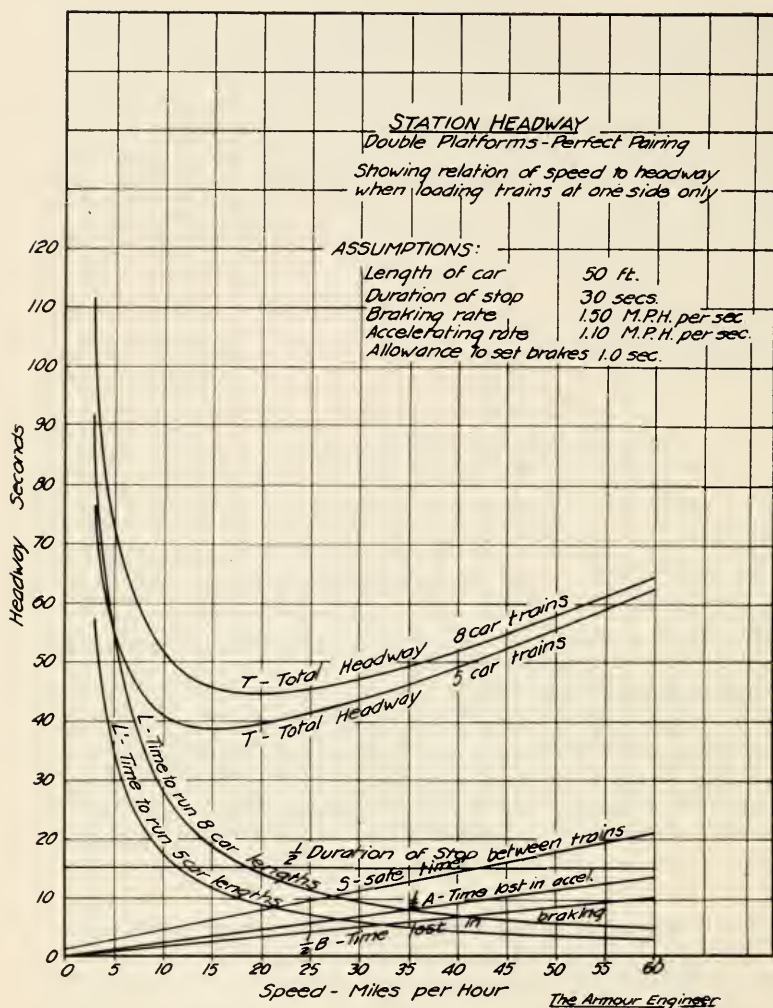 STATION HEADWAY
Double Platforms - Perfect Pairing
Showing relation of speed to headway
when loading trains at one side only
ASSUMPTIONS:
Length of car 50 ft.
Duration of stop 30 secs.
Braking rate 1.50 M.P.H. per sec
Accelerating rate 1.10 M.P.H. per sec.
Allowance to set brakes 1.0 sec.
120
110
100
90
80
70
60
50
40
30
20
10
0
Headway Seconds
T - Total Headway 8 car trains
T - Total Headway 5 car trains
L - Time to run 8 car lengths
L' - Time to run 5 car lengths
½ Duration of Stop
S - safe time between trains
½ A - Time lost in accel.
½ B - Time lost in braking
0 5 10 15 20 25 30 35 40 45 50 55 60
Speed - Miles per Hour
The Armour Engineer